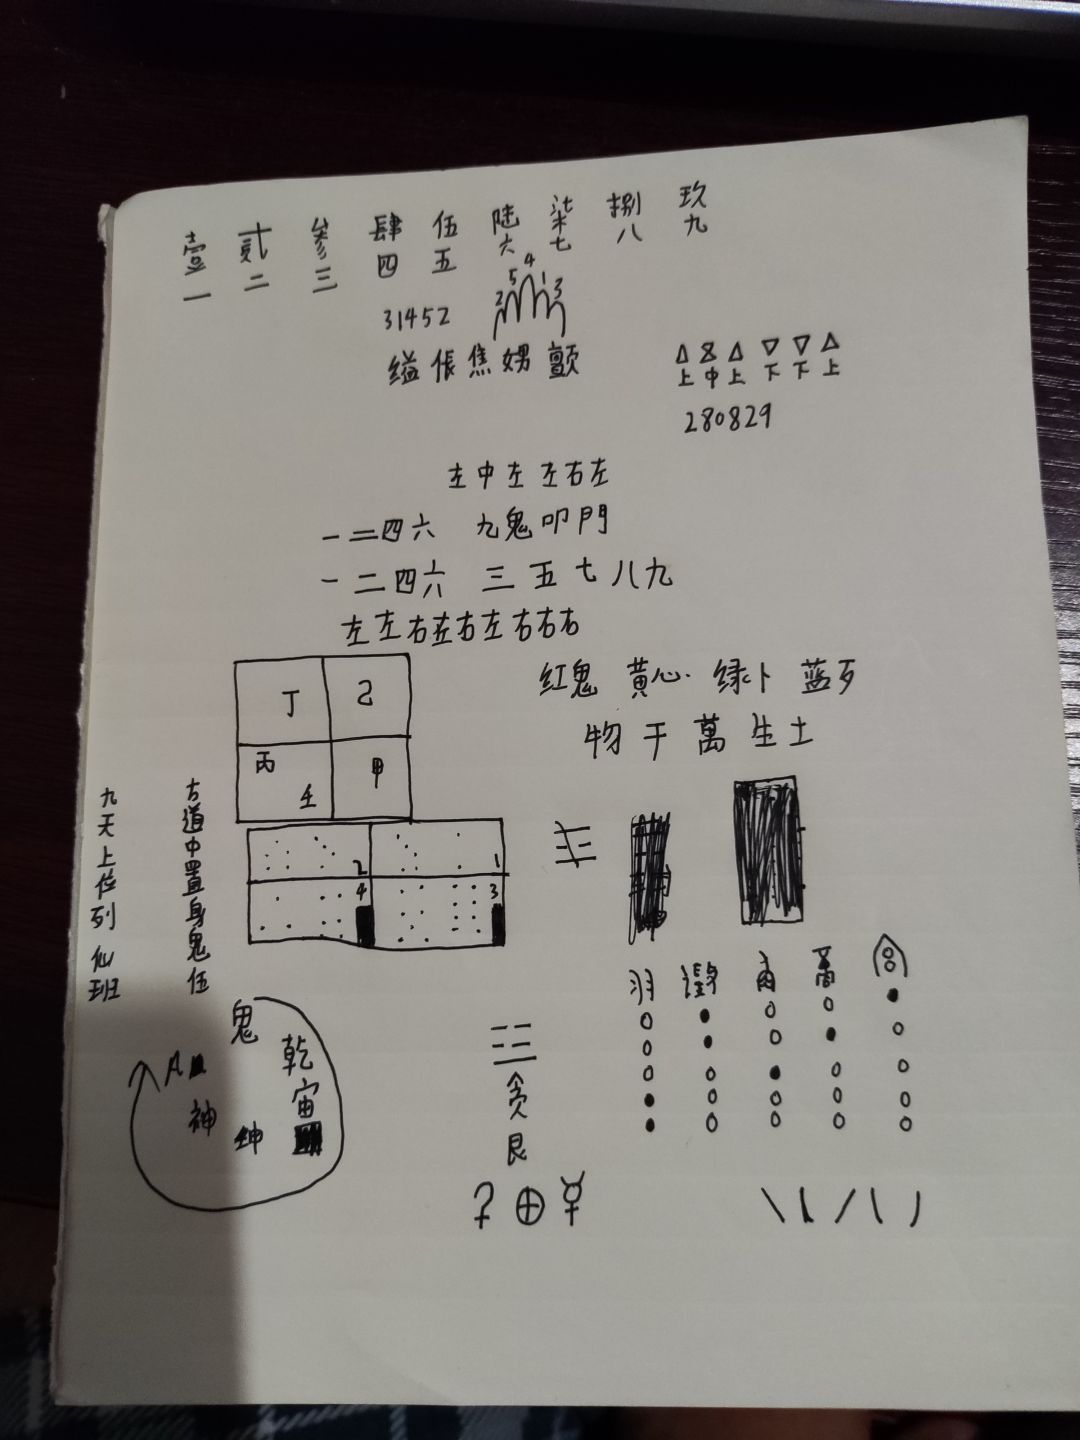 壹 貳 叁 肆 伍 陆 柒 捌 玖
一 二 三 四 五 六 七 八 九
2 5 4 1 3
31452
缢 伥 焦 娚 颤
上 中 上 下 下 上
280829
左中左 左右左
一二四六 九鬼叩門
一二四六 三五七八九
左左右左右左右右右
红鬼 黄心 绿卜 蓝歹
物干萬生土
丁 乙
丙 壬 甲
2 1
4 3
九天上位列仙班
古道中置身鬼伍
鬼
乾
宙
神
羽
贪
艮